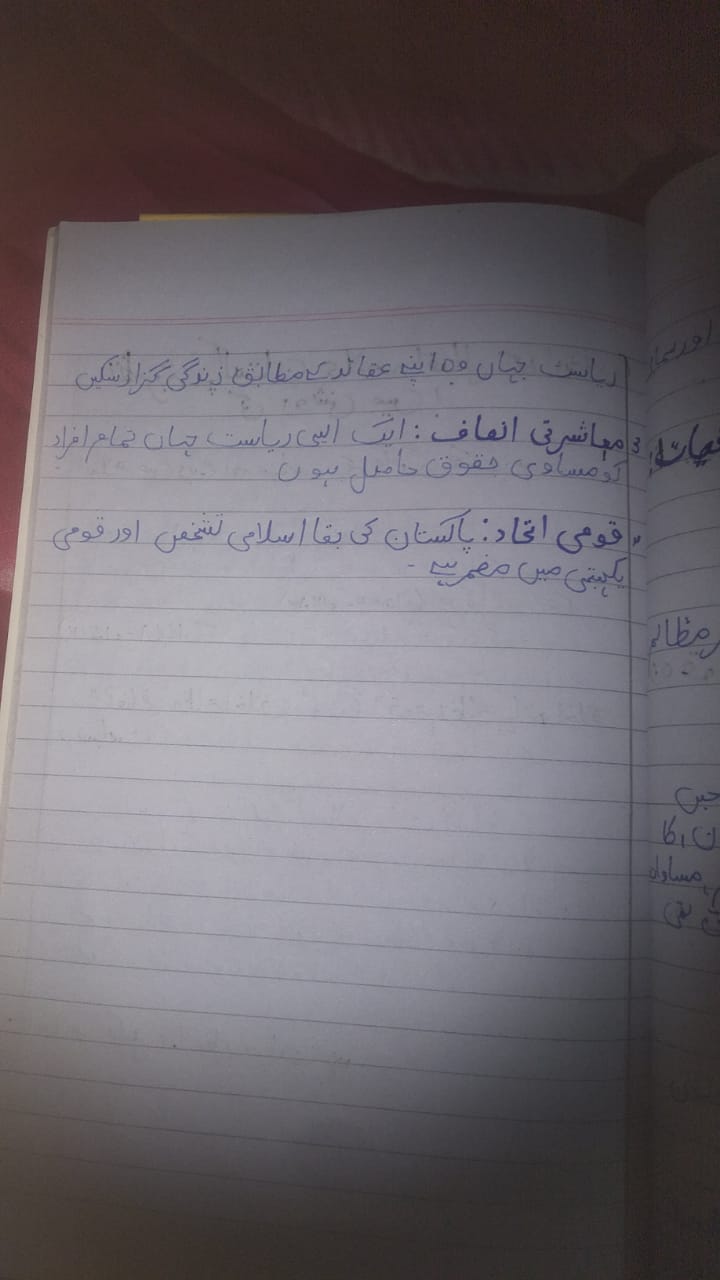 ریاست جہاں وہ اپنے عقائد کے مطابق زندگی گزار سکیں
3 معاشرتی انصاف : ایک ایسی ریاست جہاں تمام افراد
کو مساوی حقوق حاصل ہوں
قومی اتحاد : پاکستان کی بقا اسلامی تشخص اور قومی
یکجہتی میں مضمر ہے -